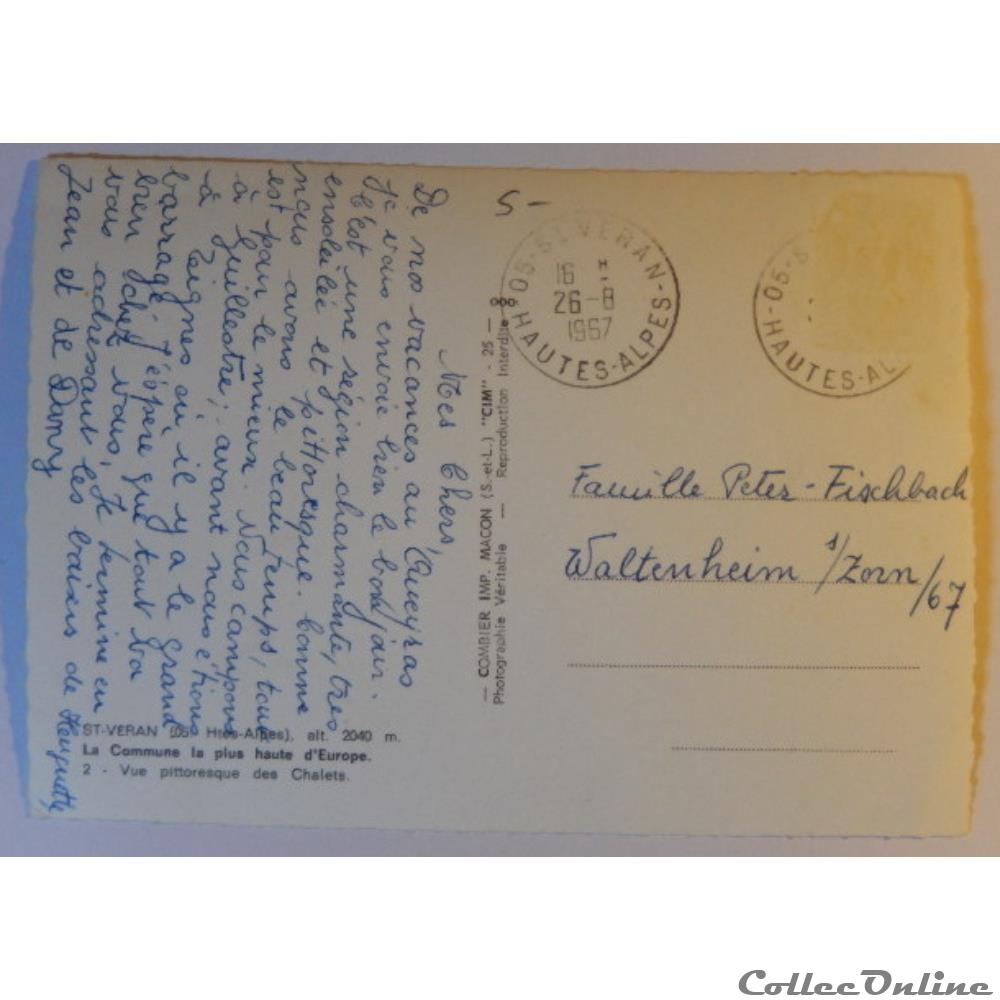 Mes Chers,
De nos vacances au Queyras
je vous envoie bien le bonjour.
C'est une région charmante, très
ensoleillée et pittoresque.
nous avons le beau temps, tout
est pour le mieux. Nous campons
à Guillestre; avant nous étions
à Tignes où il y a le grand
barrage. J'éspère que tout va
bien chez vous, Je termine en
vous adressant les baisers de
Jean et de Dany
5-
05-ST VERAN
16 H
26-8
1967
HAUTES-ALPES
05-S
HAUTES-AL
— COMBIER IMP. MACON (S.-et-L.) "CIM" - 25 —
Photographie Véritable — Reproduction Interdite
Famille Peter-Fischbach
Waltenheim s/Zorn/67
ST-VERAN (05 Htes-Alpes), alt. 2040 m.
La Commune la plus haute d'Europe.
2 - Vue pittoresque des Chalets.
CollecOnline